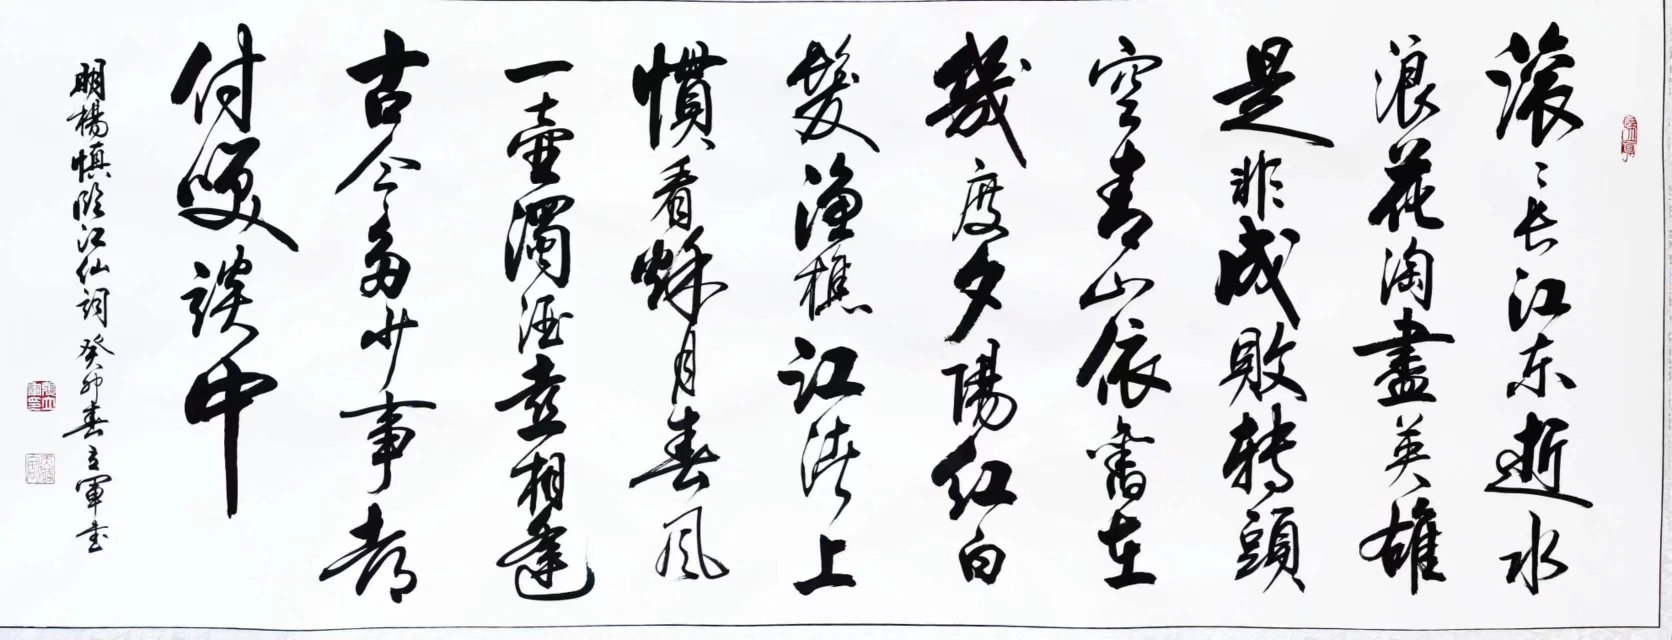 滚〻长江东逝水
浪花淘盡英雄
是非成败转頭
空青山依舊在
幾度夕陽红白
髮渔樵江渚上
慣看秌月春风
一壺濁酒喜相逢
古今多少事都
付笑談中
明楊慎临江仙詞 癸卯春立軍书